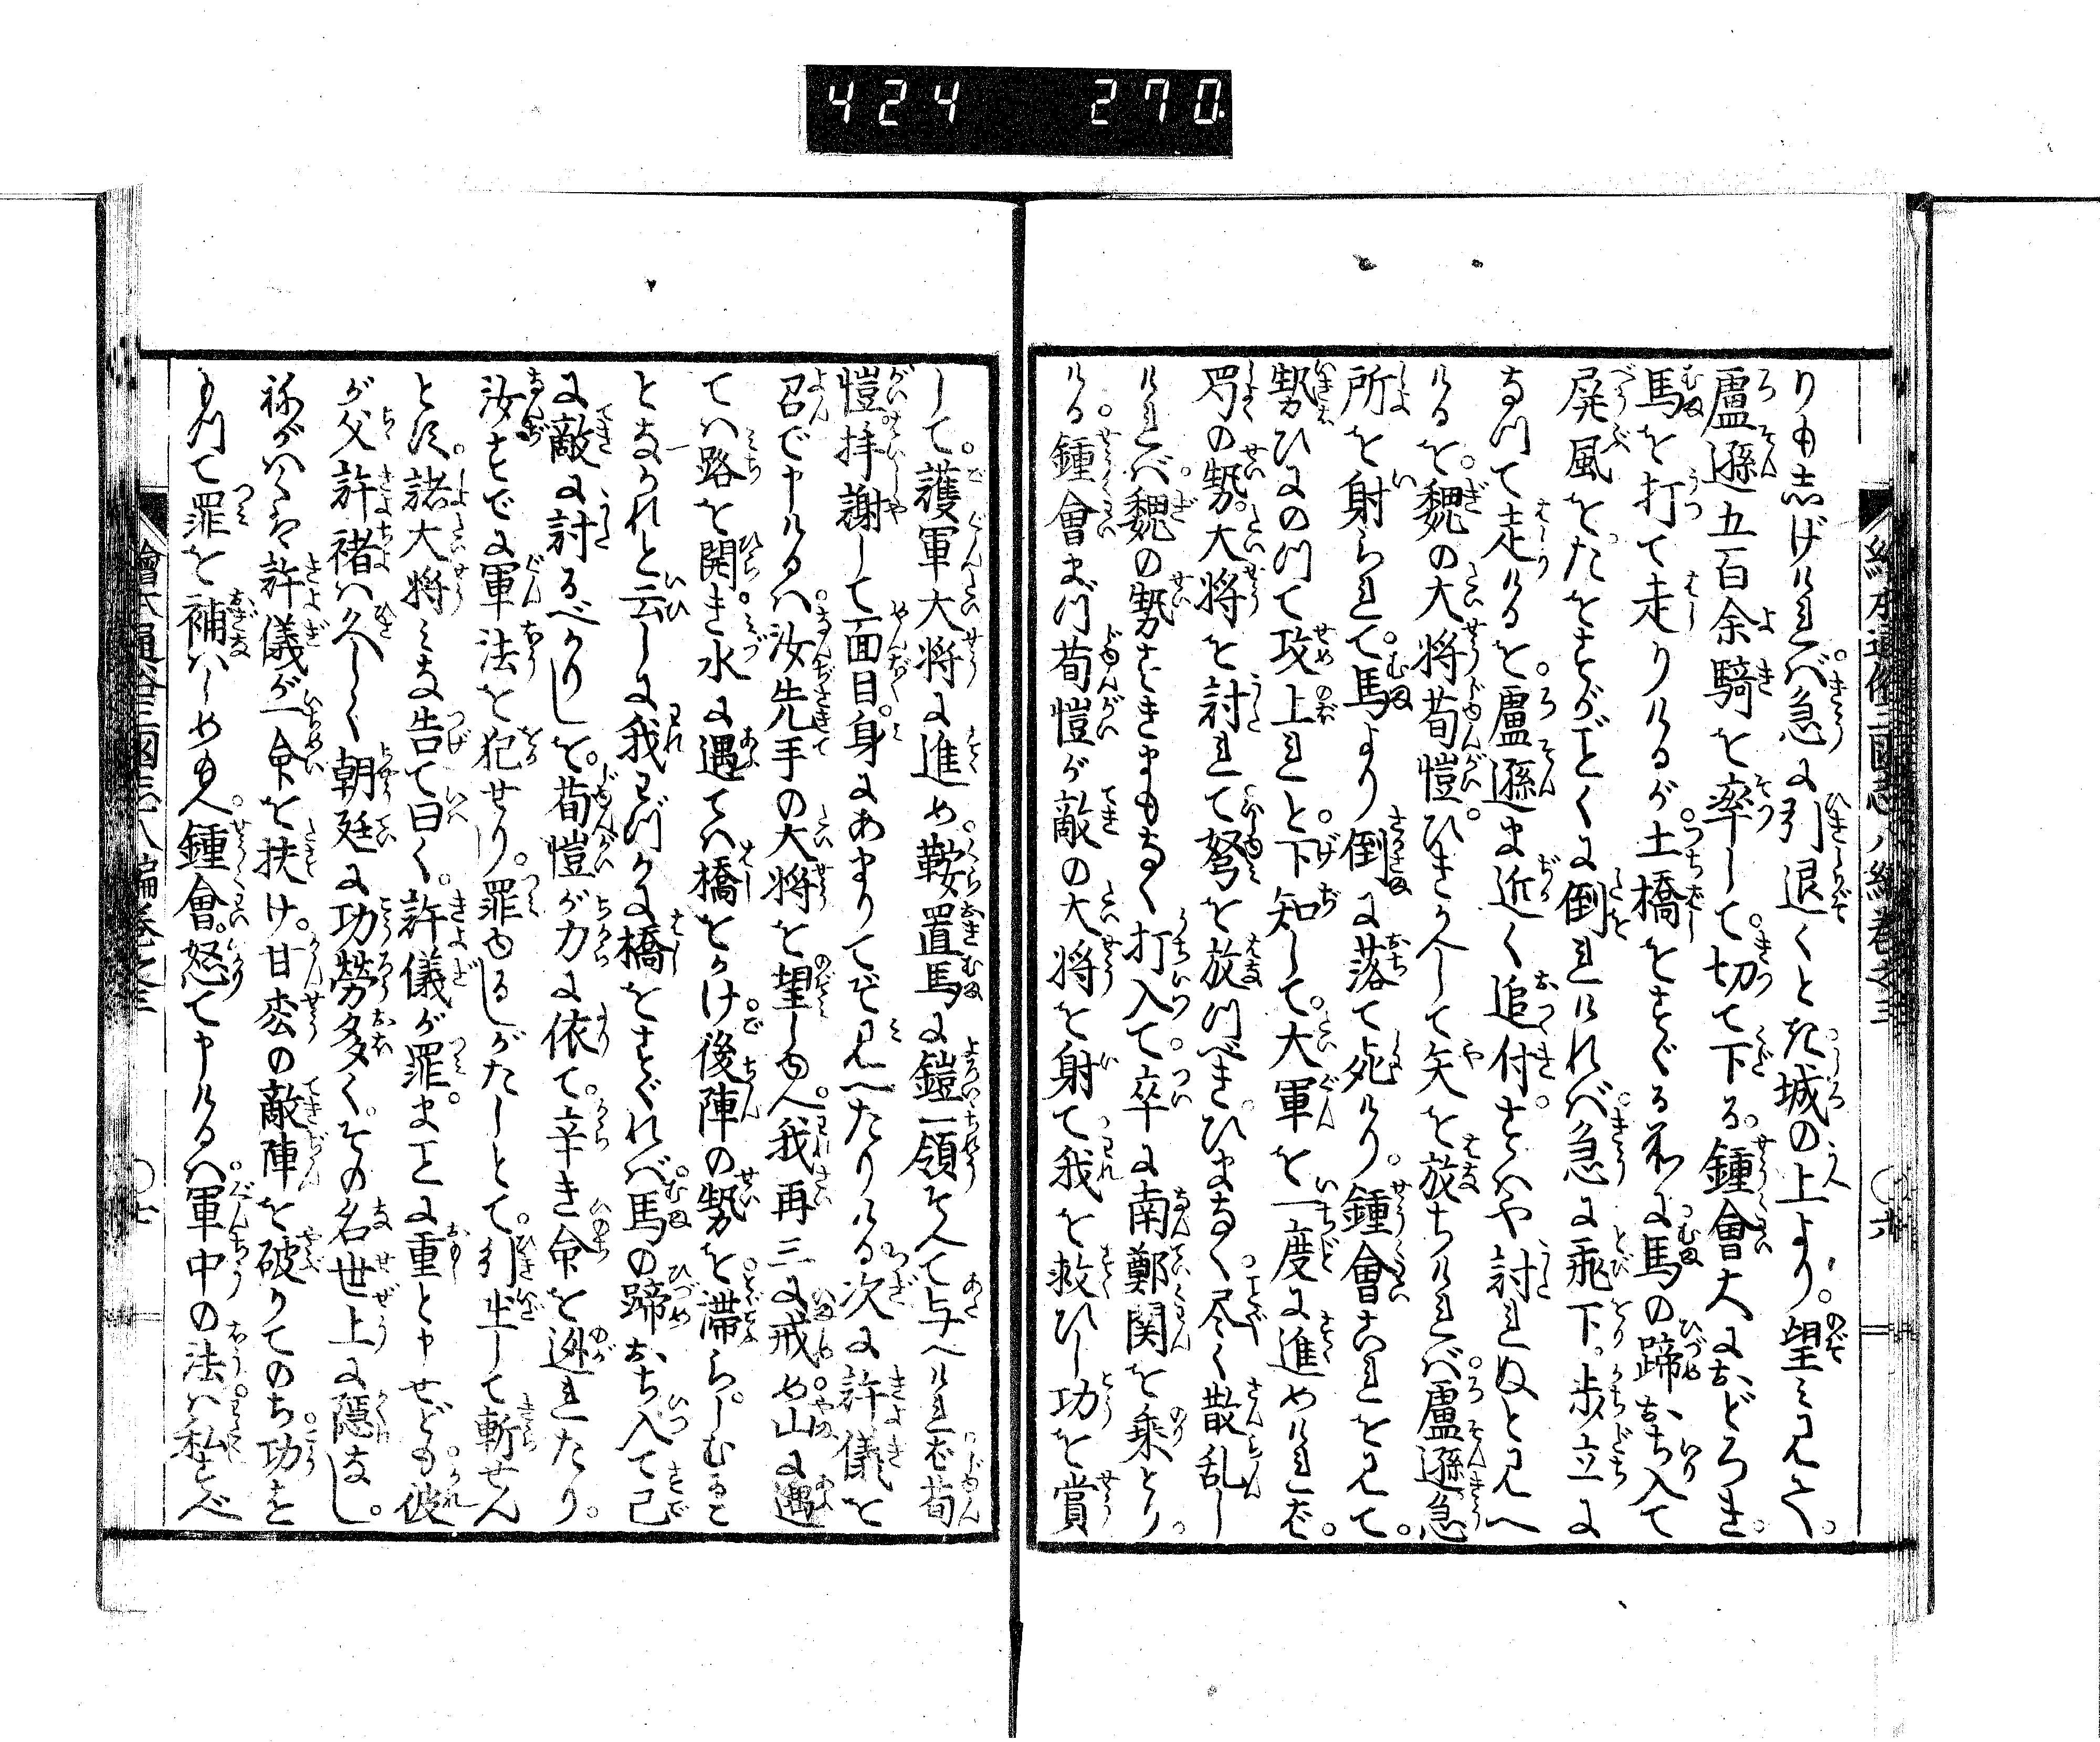 424 270
りも志げけれバ。急に引退くとき城の上より。望ミ見て。
盧遜五百余騎を率して。切て下る。鍾會大におどろき。
馬を打て走りけるが。土橋をすぐる所に馬の蹄おち入て
屏風をたをすがごとくに倒れけれバ。急に飛下。歩立に
なつて走りけるを。盧遜ま近く追付。すハや討れぬと見へ
けるを。魏の大将荀愷。ひきかへして矢を放ちけれバ。盧遜急
所を射られて。馬より倒に落て死けり。鍾會これを見て。
勢ひにのつて攻上れと。下知して。大軍を一度に進めけれバ。
蜀の勢。大将を討れて弩を放つべきひまなく。尽く散乱し
けれバ。魏の勢すきまもなく打入て。卒に南鄭関を乗とり
ける。鍾會まづ荀愷が敵の大将を射て我を救ひし功を賞
して。護軍大将に進め。鞍置馬に鎧一領そへて与へけれバ。荀
愷。拝謝して面目。身にあまりてぞ見へたりける。次に許儀を
召で申けるハ。汝先手の大将を望しゆへ。我再三に戒め。山に遇
てハ路を開き。水に遇てハ橋をかけ。後陣の勢を。滞らしむるこ
となかれと云しに。我わづかに橋をすぐれバ。馬の蹄おち入て。已
に敵に討るべかりしを。荀愷が力に依て。辛き命を逃れたり。
汝すでに軍法を犯せり。罪ゆるしがたしとて。引出して斬せん
とす。諸大将ミな告て曰く。許儀が罪。まことに重と申せども。彼
が父許褚ハ久しく朝廷に功労多く。その名世上に隠なし。
ねがハくハ許儀が一命を扶け。甘松の敵陣を破りてのち。功を
もつて罪を補ハしめ給へ。鍾會。怒て申けるハ。軍中の法ハ私すべ